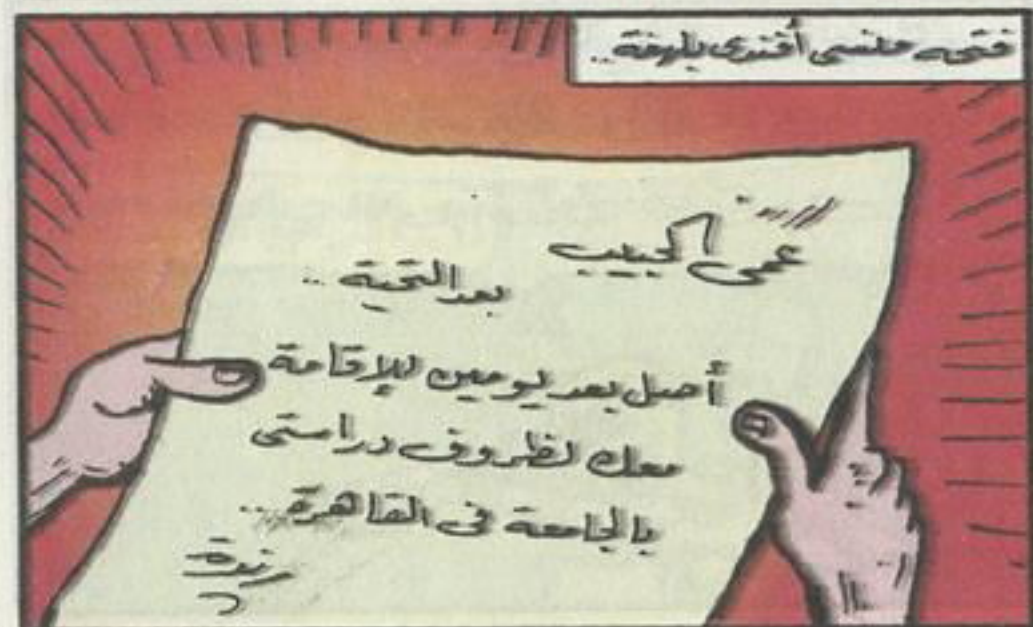 فتحه منسى أفندى بلهفة..
عمى الحبيب
بعد التحية ..
أصل بعد يومين للإقامة
معك لظروف دراستى
بالجامعة فى القاهرة ..
رندة